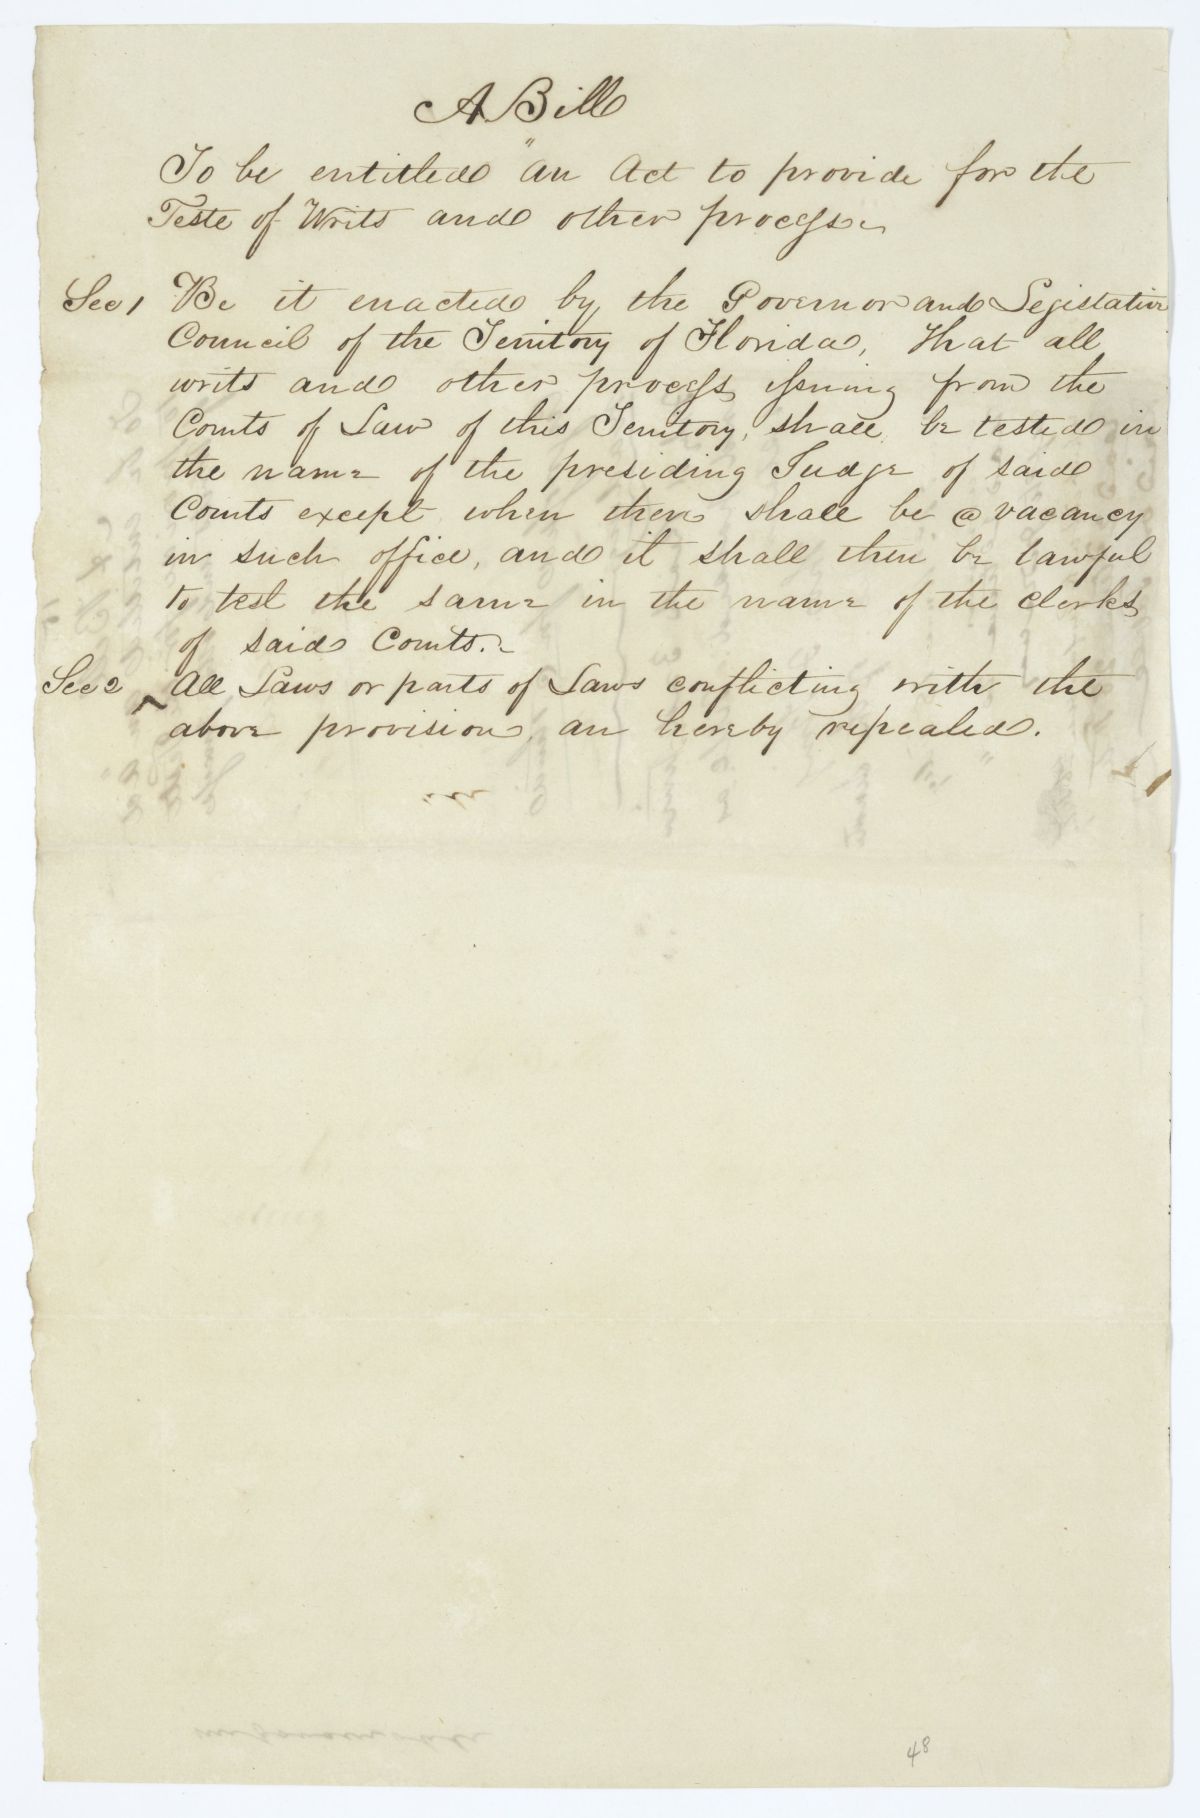 A Bill
To be entitled "An Act to provide for the
Teste of Writs and other process.
Sec 1 Be it enacted by the Governor and Legislative
Council of the Territory of Florida, That all
writs and other process issuing from the
Courts of Law of this Territory, shall be tested in
the name of the presiding Judge of said
Courts except when there shall be a vacancy
in such office, and it shall then be lawful
to test the same in the name of the clerks
of said Courts.
Sec 2 ^ All Laws or parts of Laws conflicting with the
above provision, are hereby repealed.
48